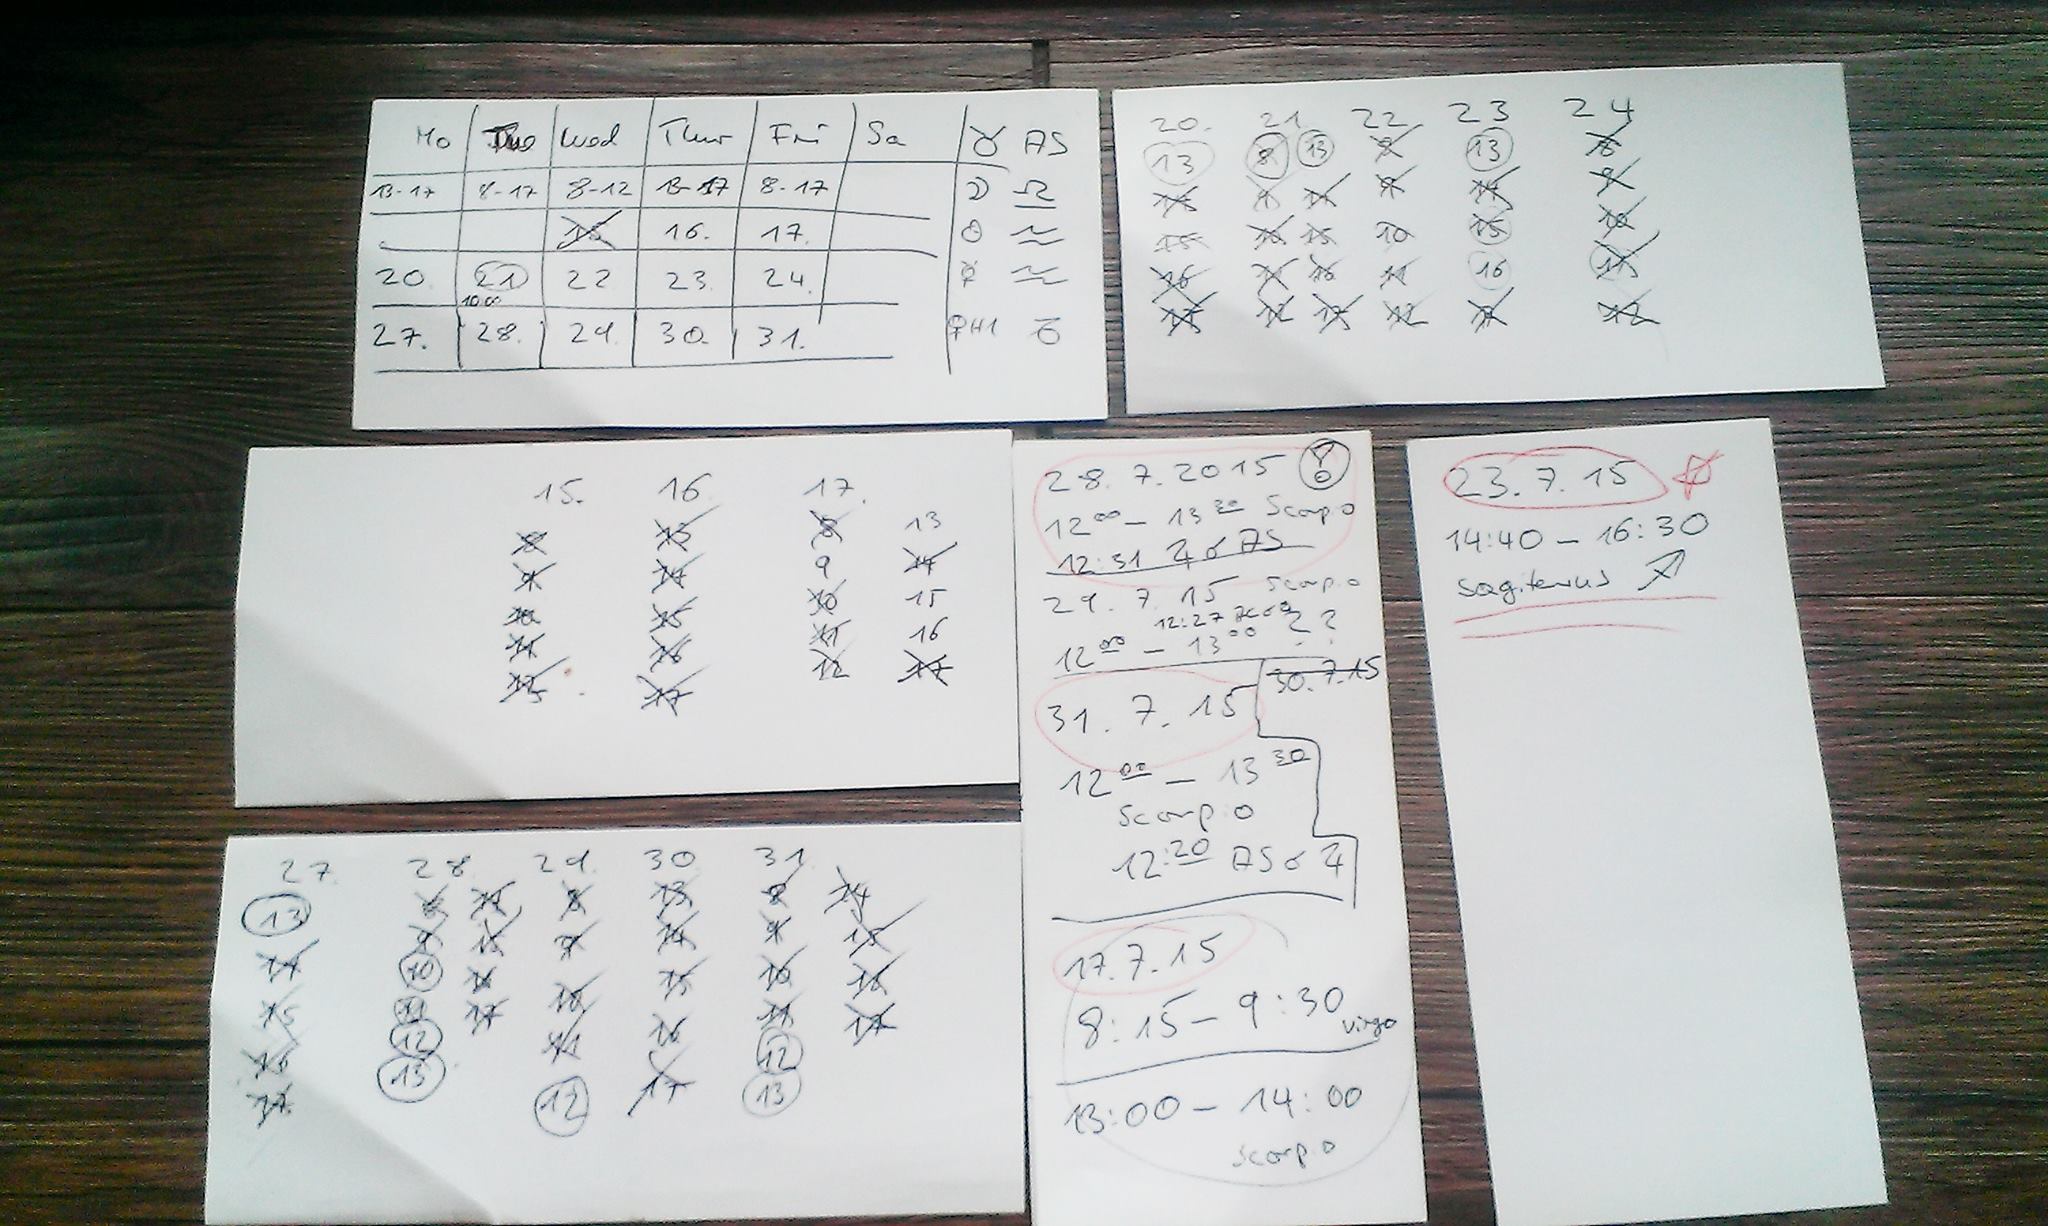 Mo Tue Wed Thur Fri Sa ♉ AS
13-17 8-17 8-12 13-17 8-17 ☽ ♎
15 16. 17. ☉ ♒
20. 21 22 23. 24. ☿ ♒
10.00
27. 28. 29. 30. 31. ♀H1 ♉
20. 21 22 23 24
13 8 13 8 13 8
14 9 14 9 14 9
15 10 15 10 15 10
16 11 16 11 16 11
17 12 17 12 17 12
15. 16 17.
8 13 8 13
9 14 9 14
10 15 10 15
11 16 11 16
12 17 12 17
28.7.2015
12 00 – 13 30 Scorpio
12:31 ♃ ☌ AS
29.7.15 Scorpio
12:27
12 00 – 13 00 ??
30.7.15
31.7.15
12 00 – 13 30
Scorpio
12:20 AS ☌ ♃
17.7.15
8:15 – 9:30 virgo
13:00 – 14:00
Scorpio
23.7.15
14:40 – 16:30
Sagitarius ♐
27. 28. 29. 30 31.
13 8 14 8 13 8 14
14 9 15 9 14 9 15
15 10 16 10 15 10 16
16 11 17 11 16 11 17
17 12 12 17 12
13 13